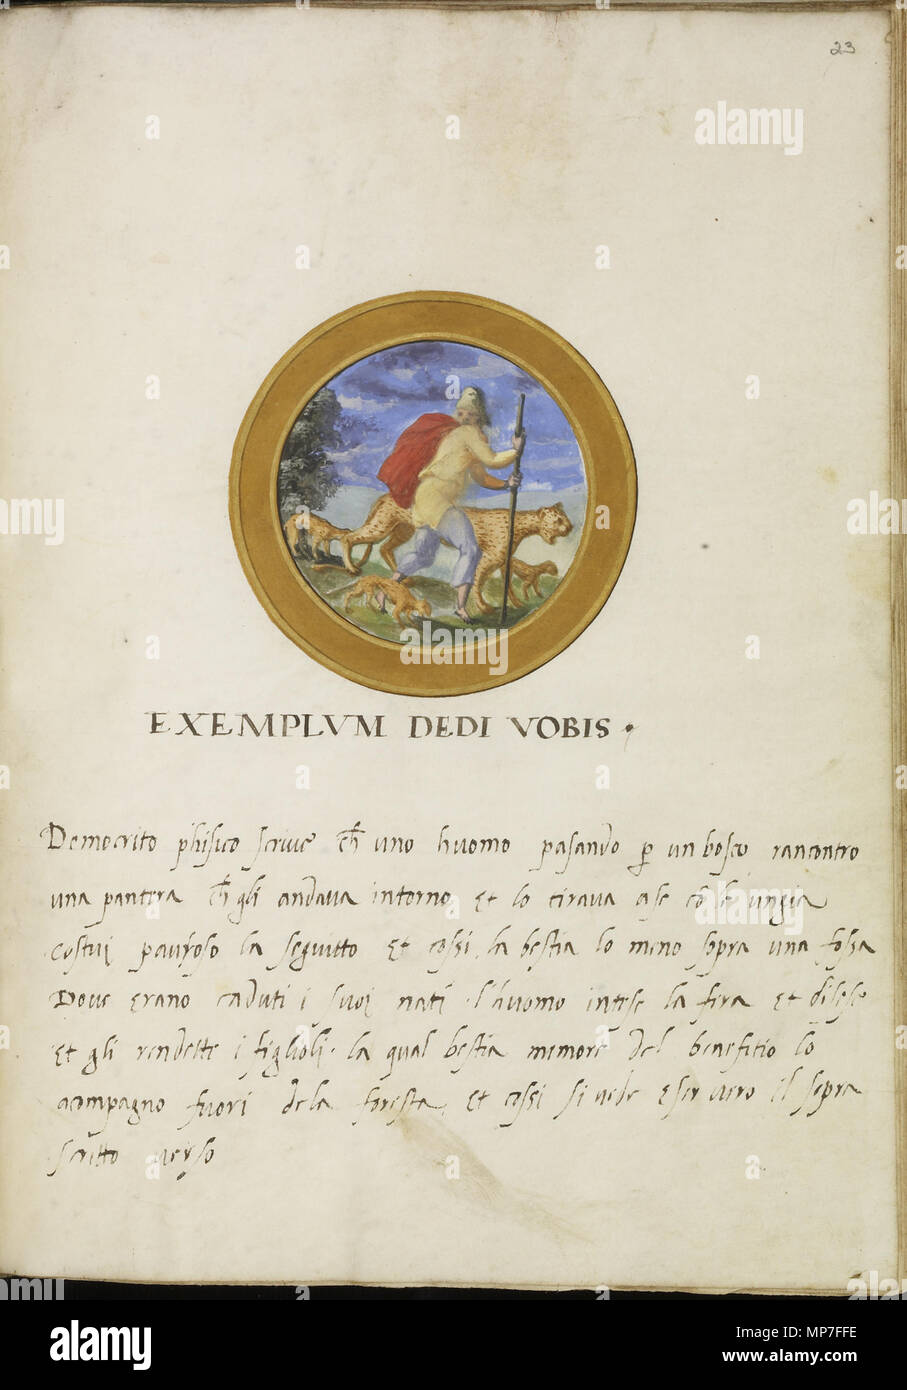 23
EXEMPLVM DEDI VOBIS ·
Democrito phisico scriue ch̄ uno huomo pasando p̱ un bosco rancontro
una pantera ch̄ gli andaua intorno et lo tiraua a se cō le ungia
costui pauroso la seguitto et cossi la bestia lo meno sopra una fossa
Doue erano caduti i suoi nati · l'huomo intese la fera et disese
et gli rendette i figlioli · la qual bestia memore del benefitio lo
acompagno fuori de la foresta, et cossi si uede eser uero il sopra
scritto uerso
alamy stock photo
MP7FFE
www.alamy.com